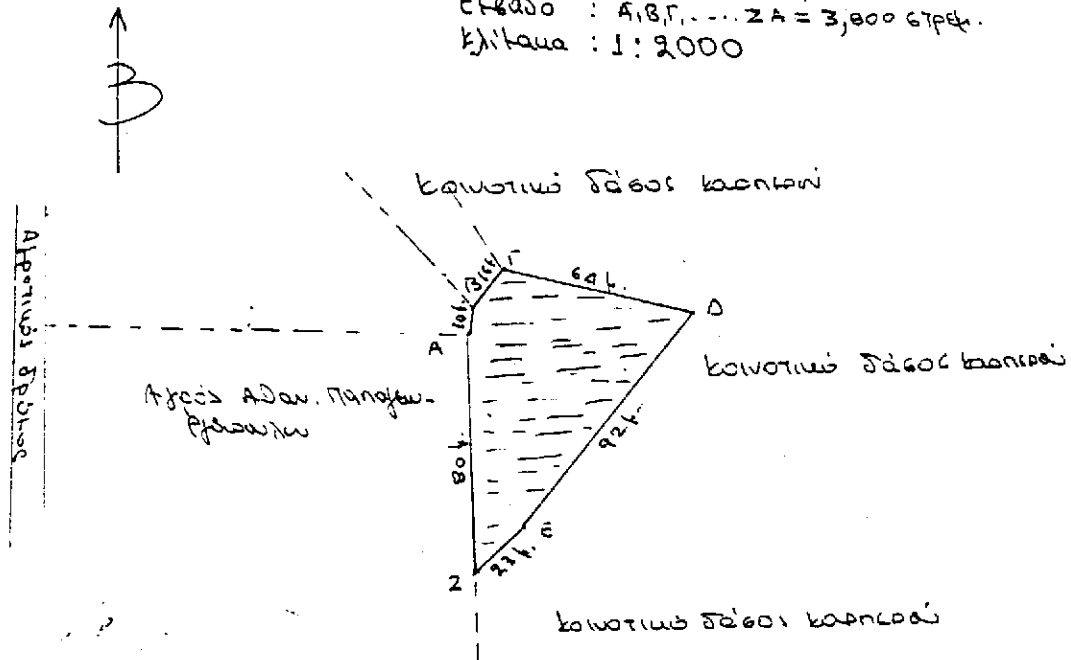 Εμβαδό : Α,Β,Γ,....ΖΑ = 3,800 στρεμ.
Κλίμακα : 1:2000
Β
κοινοτικό δάσος καρπερού
Αγροτικός δρόμος
Γ
Β 16μ
64 μ.
10μ
Δ
Α
κοινοτικό δάσος καρπερού
Αγρός Αθαν.
92 μ.
80 μ
Ε
23 μ.
Ζ
κοινοτικό δάσος καρπερού